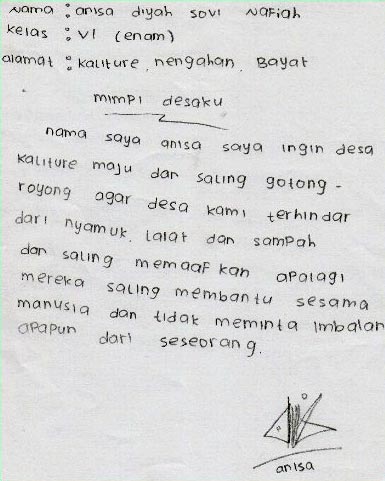 Nama : anisa diyah sovi Nafiah
kelas : VI (enam)
alamat : kaliture, nengahan, Bayat
mimpi desaku
nama saya anisa saya ingin desa
kaliture maju dan saling gotong -
royong agar desa kami terhindar
dari nyamuk, lalat dan sampah
dan saling memaaf kan apalagi
mereka saling membantu sesama
manusia dan tidak meminta imbalan
apapun dari seseorang.
anisa